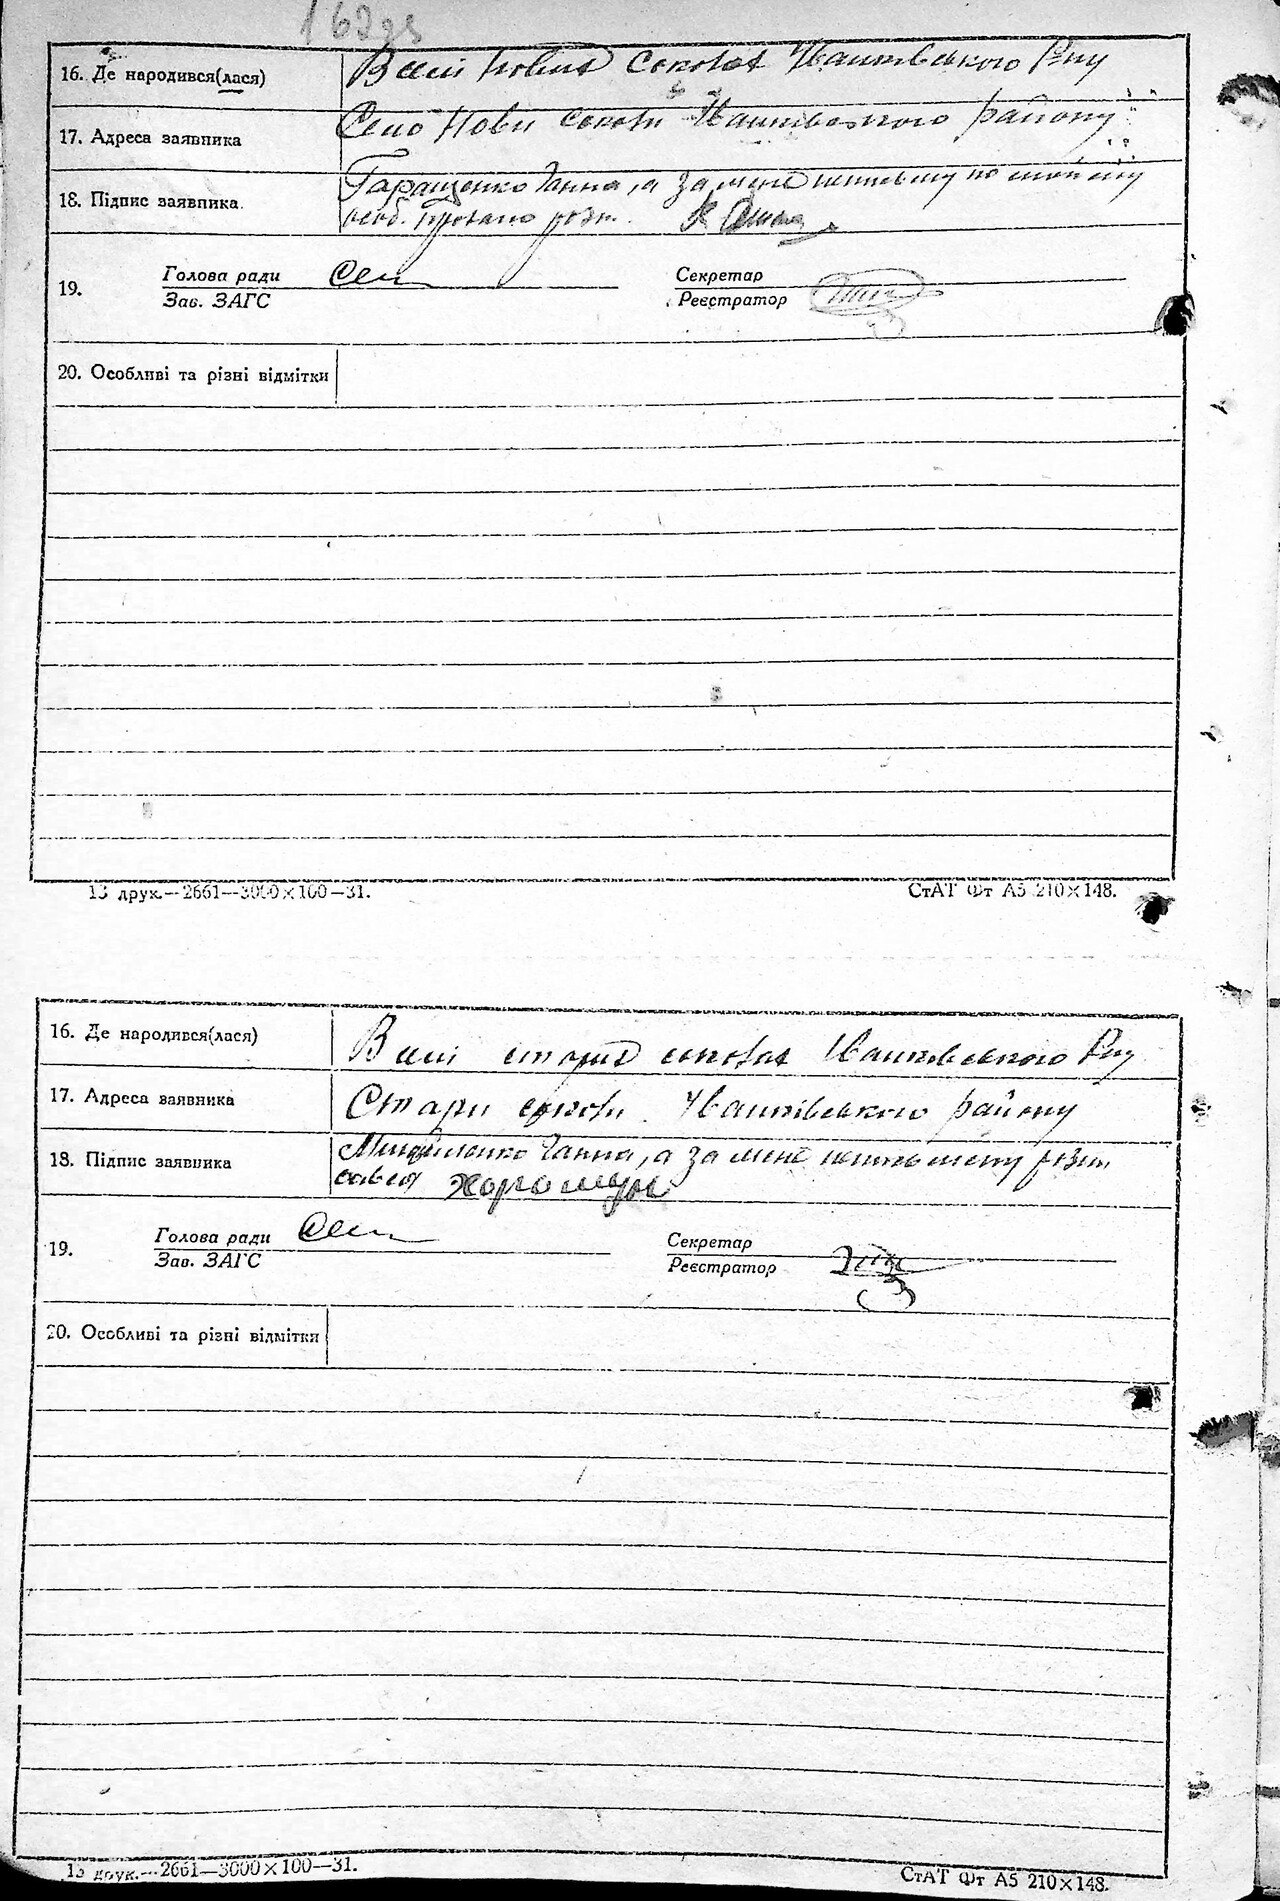 162зв
16. Де народився(лася) В селі нових Соколах Іванківського Р-ну
17. Адреса заявника Село Нови Соколи Іванківського району
18. Підпис заявника. Гаращенко Ганна, а за мене неписьмену по
особ. розп.
19. Голова ради
Зав. ЗАГС
Секретар
Реєстратор
20. Особливі та різні відмітки
13 друк.—2661—3000×100—31. СтАТ Фт А5 210×148.
16. Де народився(лася) В селі старих соколах Іванківського Р-ну
17. Адреса заявника Стари соколи Іванківського району
18. Підпис заявника Ганна, а за мене неписьмену розп.
хоромун
19. Голова ради
Зав. ЗАГС
Секретар
Реєстратор
20. Особливі та різні відмітки
13 друк.—2661—3000×100—31. СтАТ Фт А5 210×148.